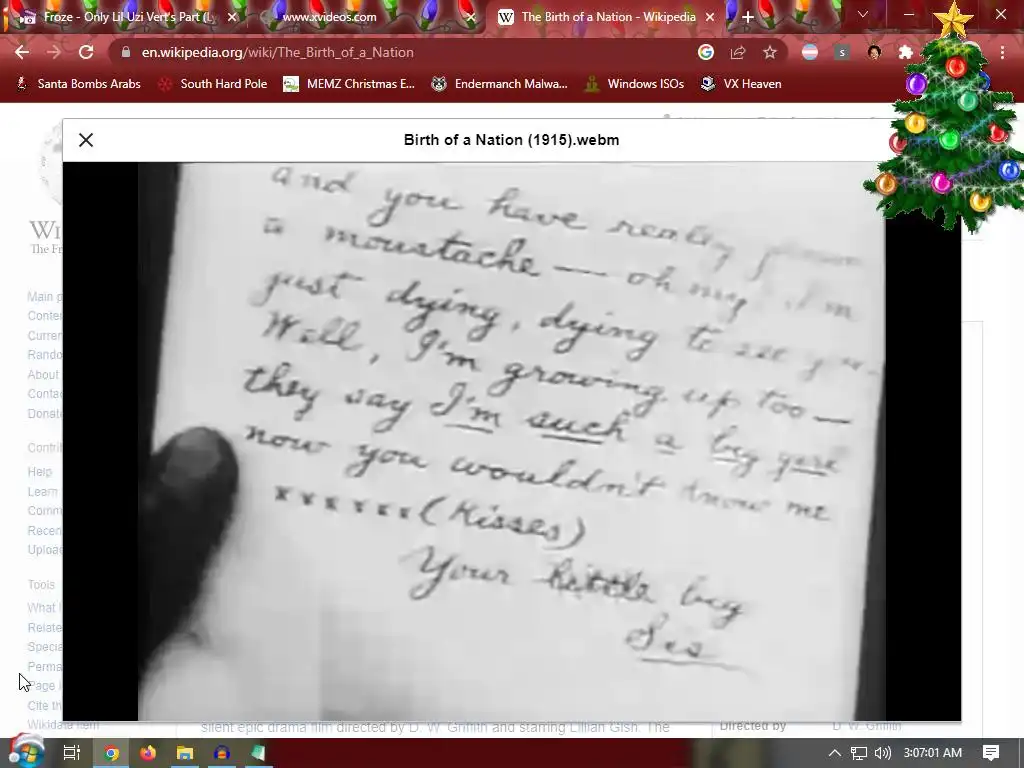 Froze - Only Lil Uzi Vert's Part (L
www.xvideos.com
The Birth of a Nation - Wikipedia
en.wikipedia.org/wiki/The_Birth_of_a_Nation
Santa Bombs Arabs
South Hard Pole
MEMZ Christmas E...
Endermanch Malwa...
Windows ISOs
VX Heaven
Birth of a Nation (1915).webm
and you have really grown
a moustache — oh my! I'm
just dying, dying to see you.
Well, I'm growing up too —
they say I'm such a big girl
now you wouldn't know me
xxxxxx (Kisses)
Your little big
Sis
Main p
Conten
Curren
Rando
About
Contac
Donate
Contrib
Help
Learn
Comm
Recen
Upload
Tools
What l
Relate
Specia
Perma
Page i
Cite th
Wikidata item
silent epic drama film directed by D. W. Griffith and starring Lillian Gish. The
Directed by
D. W. Griffith
3:07:01 AM